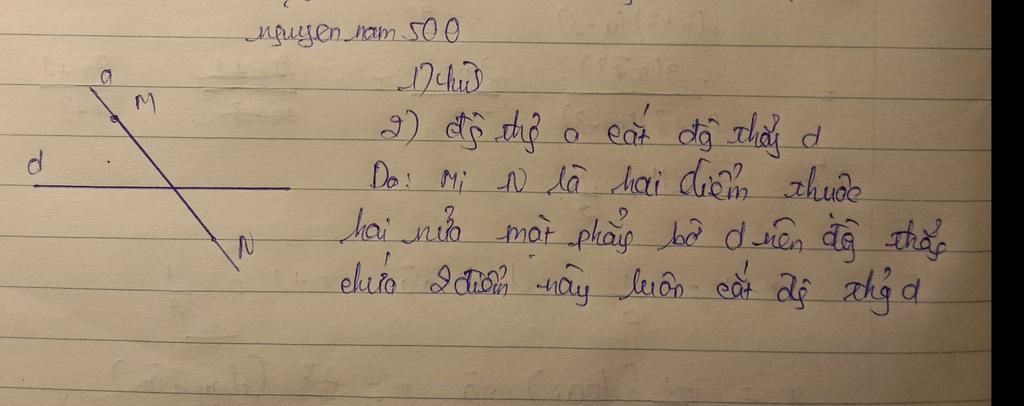 nguyen nam 500
a
M
2) đg thg a cắt đg thẳg d
d
Do: M; N là hai điểm thuộc
hai nửa mặt phẳg bờ d nên đg thẳg
N
chứa 2 điểm này luôn cắt đg thg d